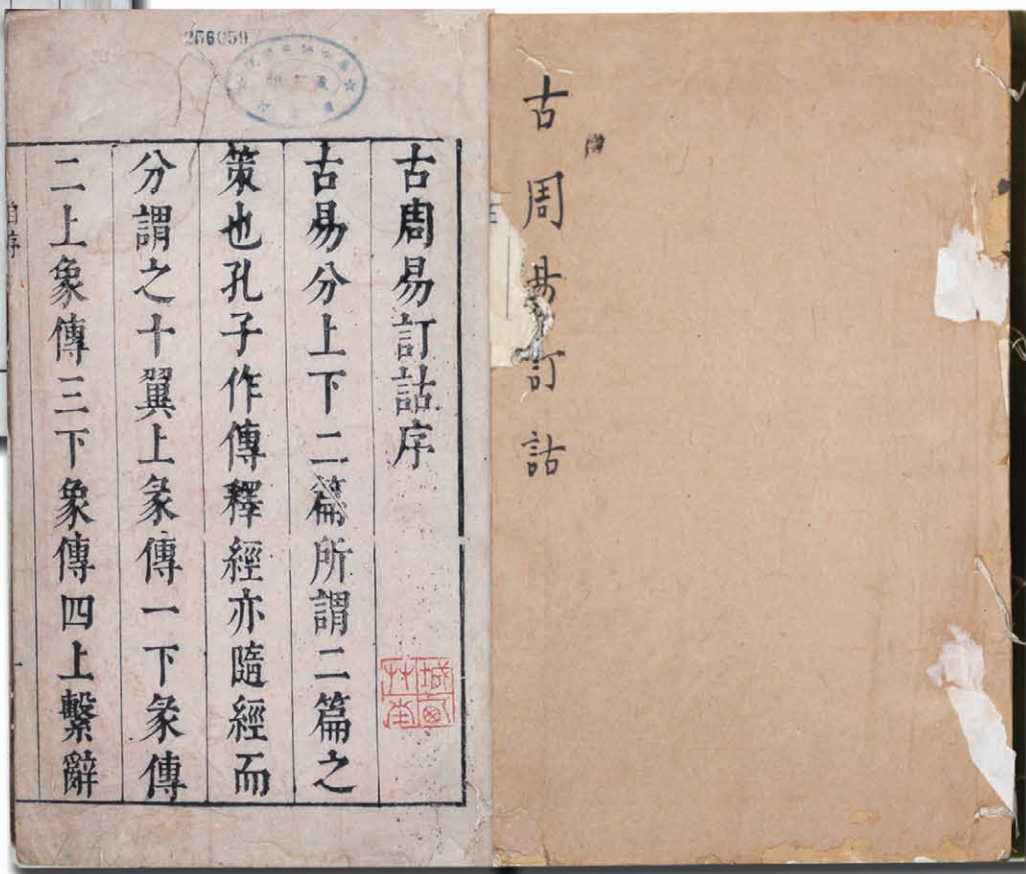 古周易訂詁
256059
古周易訂詁序
古易分上下二篇所謂二篇之
策也孔子作傳釋經亦隨經而
分謂之十翼上彖傳一下彖傳
二上象傳三下象傳四上繫辭
自序